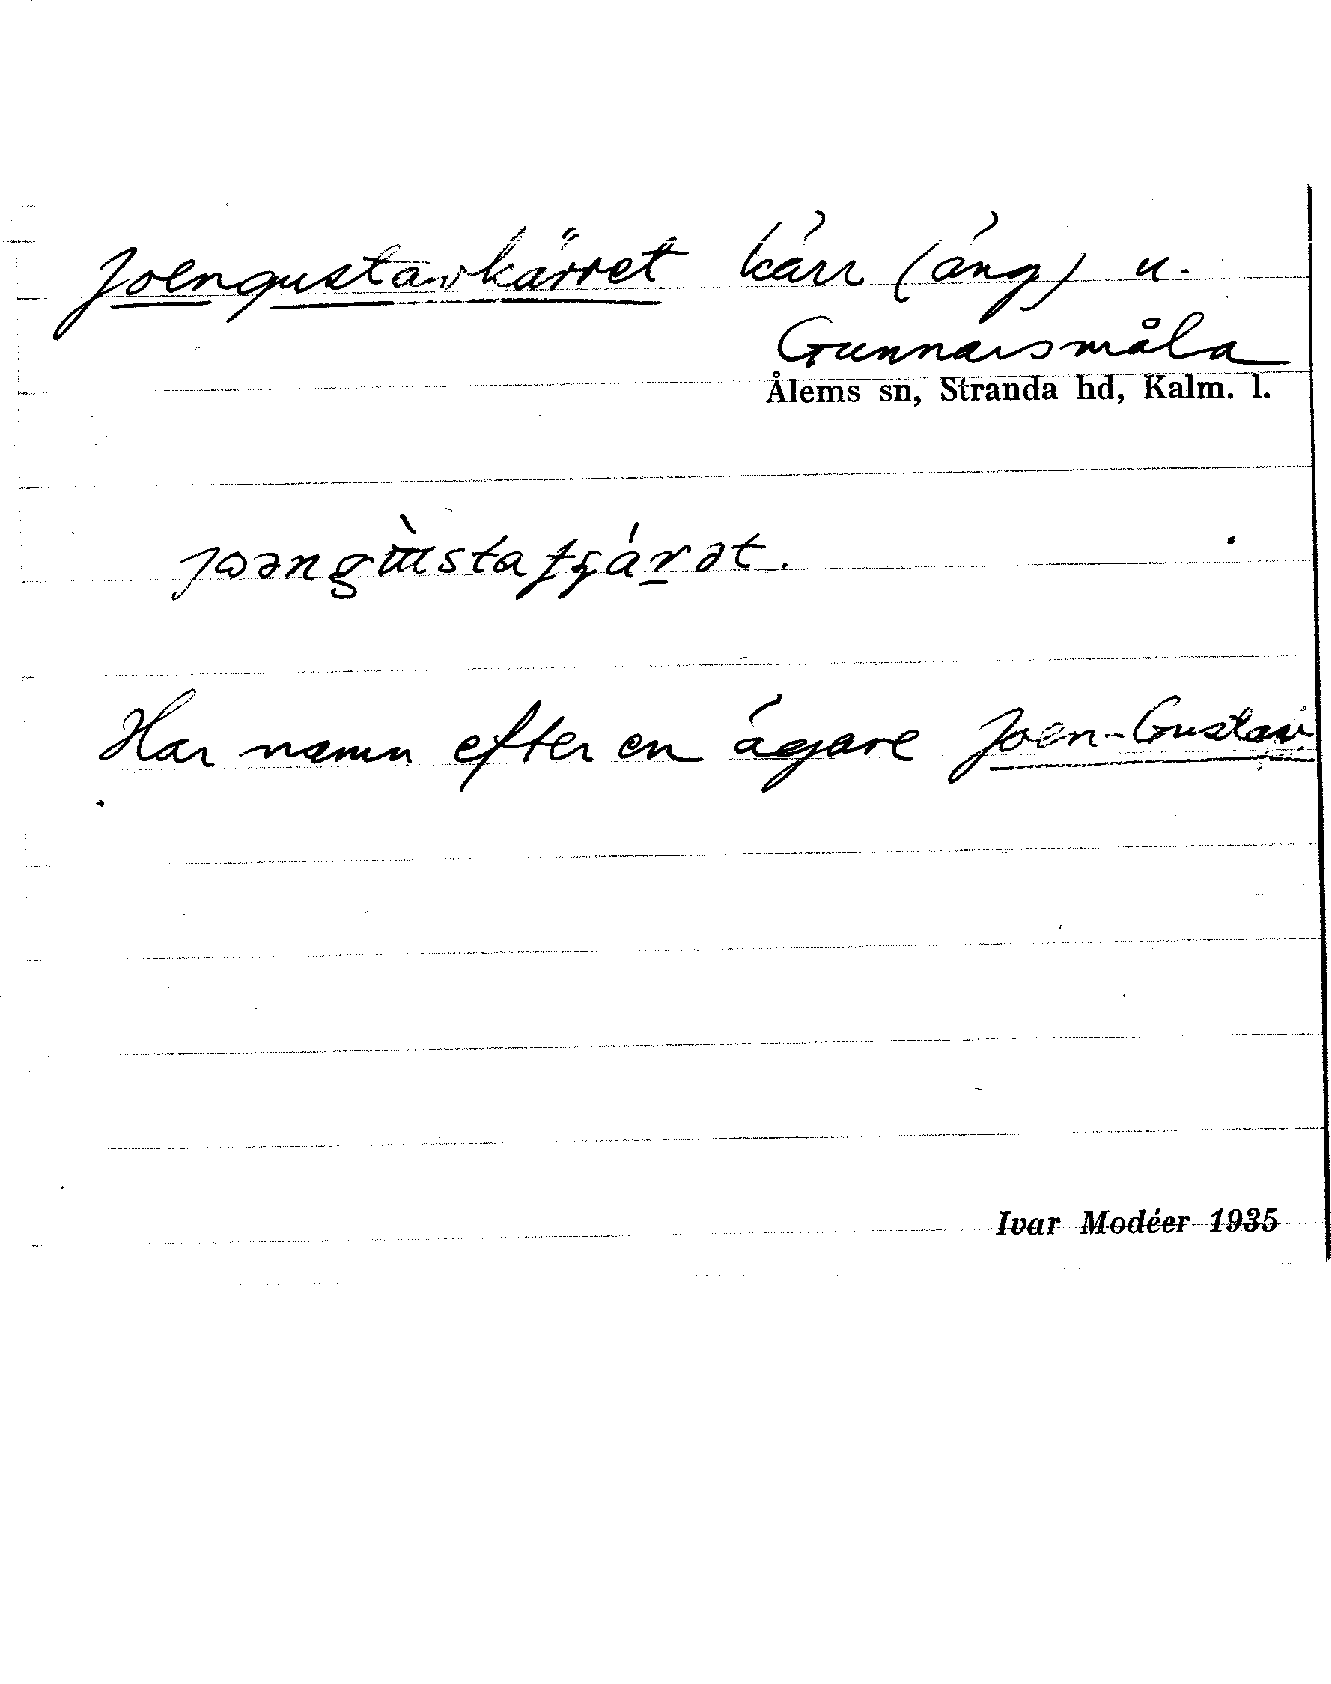 Joengustavkärret kärr (äng) u.
Gunnarsmåla
Ålems sn, Stranda hd, Kalm. l.
Har namn efter en ägare Joen-Gustav.
Ivar Modéer 1935